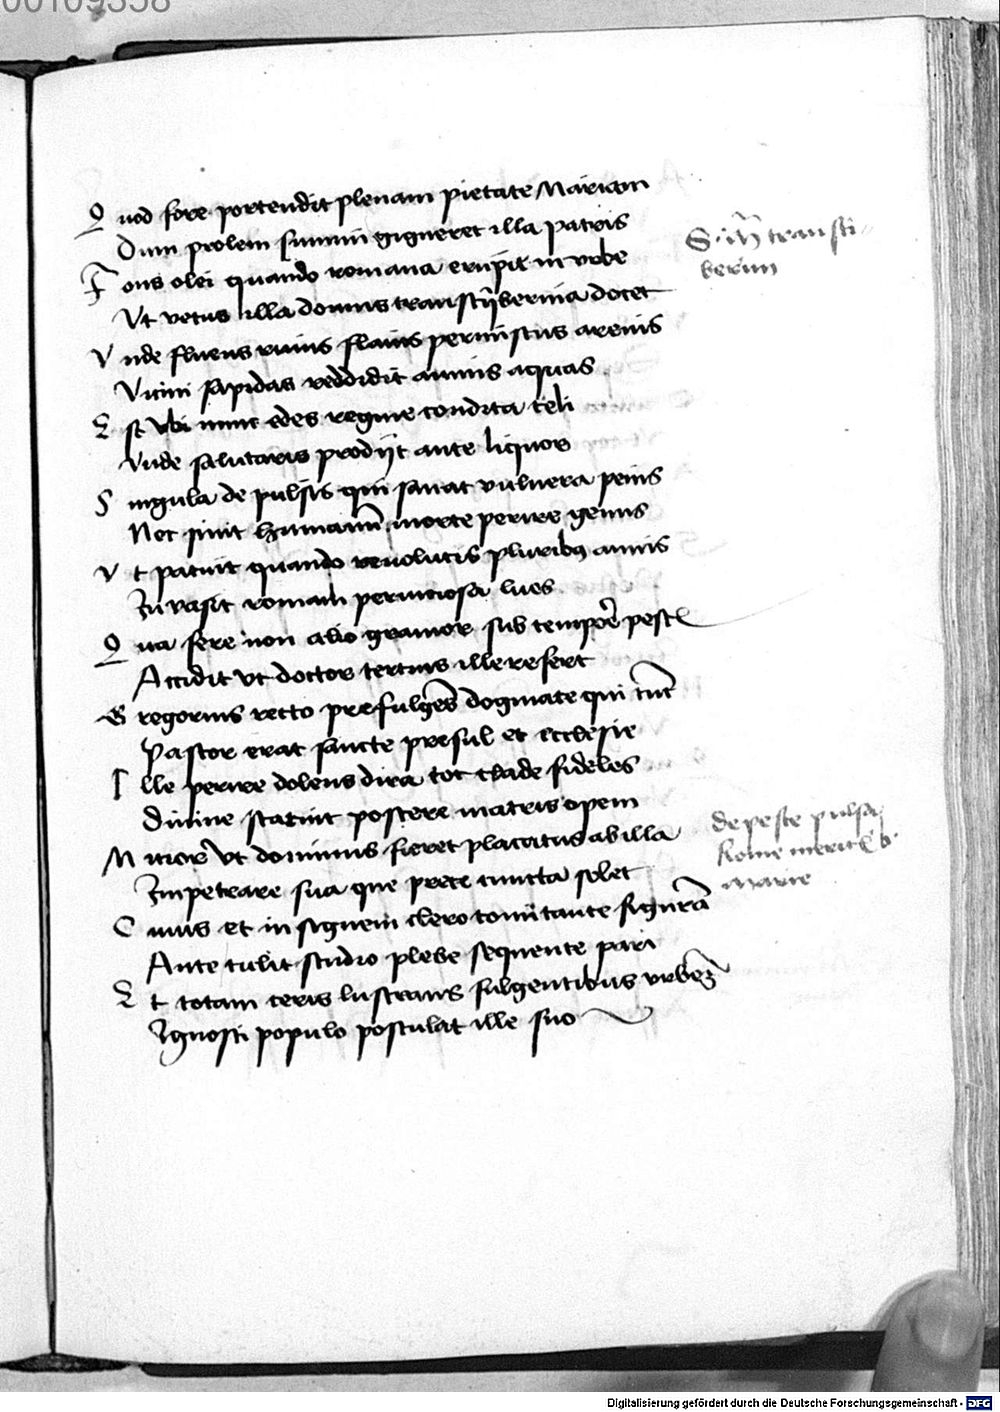 00109358
Quod fore portendit plenam pietate Mariam
Dum prolem summi gigneret illa patris
S. M transti-
berim
Fons olei quando romana erupit in vrbe
Vt vetus illa domus transtÿberina docet
Vnde fluens riuus flauis permistus arenis
Vicini sapidas reddidit amnis aquas
Est vbi nunc edes regine condita celi
Vnde salutaris prodÿt ante liquor
Singula de pulsis qui sanat vulnera penis
Nec sinit humanū morte perire genus
Vt patuit quando reuolutis pluribus annis
Inuasit romam perniciosa lues
Qua fere non alio grauior sub tempore pestis
Accidit vt doctor tertius ille refert
Gregorius recto prefulgēs dogmate qui tūc
Pastor erat sancte presul et ecclesie
Ille perire dolens dira tot clade fideles
Diuine statuit poscere matris opem
de peste pulsa
Rome meritis b.
marie
Micior vt dominus fieret placatus ab illa
Impetrare sua que prece cuncta solet
Cuius et insignem clero comitante figurā
Ante tulit studio plebe sequente pari
Et totam ceris lustrans fulgentibus vrbem
Ignosci populo postulat ille suo
Digitalisierung gefördert durch die Deutsche Forschungsgemeinschaft - DFG